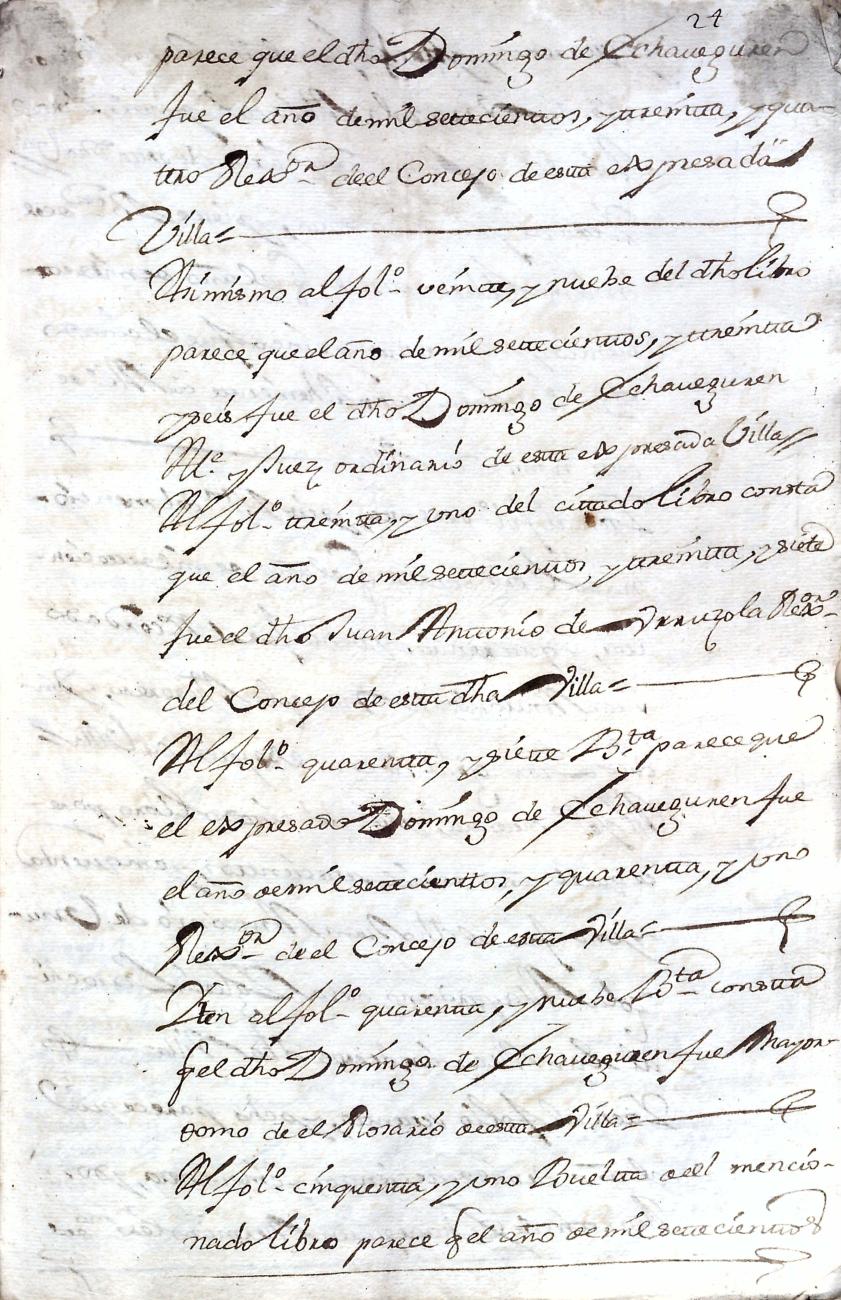 24
parece que el dho Domingo de Echaueguren
fue el año de mil settecienttos, y ttreintta, y qua-
ttro Rexor de el Concejo de estta expresada
Villa=
Asimismo al folo veintte, y nuebe del dho libro
parece que el año de mil settecienttos, y ttreintta
y seis fue el dho Domingo de Echaueguren
Alce y Juez ordinario de estta expresada Villa=
Al folo ttreintta, y uno del cittado libro consta
que el año de mil settecienttos, y ttreintta, y siete
fue el dho Juan Anttonio de Urruzola Rexor
del Concejo de estta dha Villa=
Al folo quarentta, y siette Bta parece que
el expresado Domingo de Echaueguren fue
el año de mil settecienttos, y quarentta, y uno
Rexor de el Concejo de estta Villa=
Iten al folo quarentta, y nuebe Bta constta
q el dho Domingo de Echaueguren fue Mayor-
domo de el Rosario de estta Villa=
Al folo cinquentta, y uno Bueltta de el mencio-
nado libro parece q el año de mil settecienttos